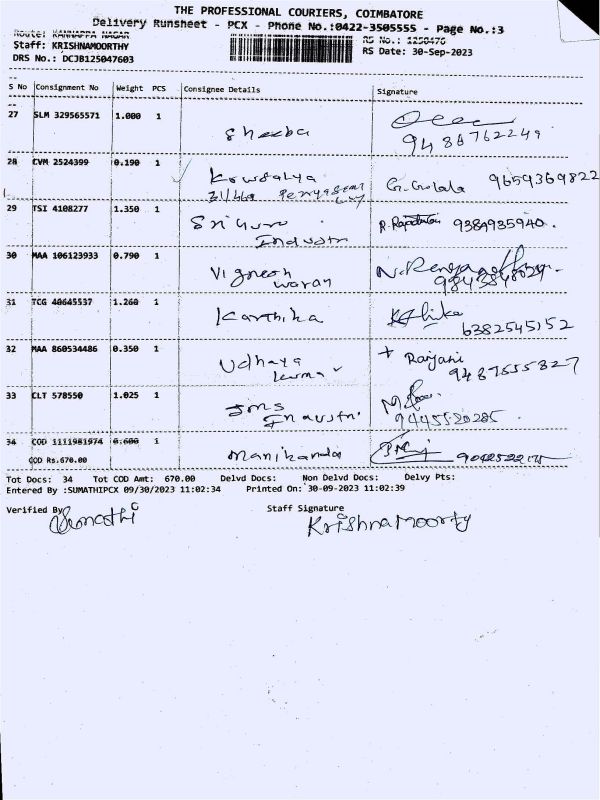 THE PROFESSIONAL COURIERS, COIMBATORE
Delivery Runsheet - PCX - Phone No.:0422-3505555 - Page No.:3
Route: KANNAPPA NAGAR
RS No.: 1250476
Staff: KRISHNAMOORTHY
RS Date: 30-Sep-2023
DRS No.: DCJB125047603
S No Consignment No Weight PCS Consignee Details Signature
27 SLM 329565571 1.000 1 Sheeba
9486762249
28 CVM 2524399 0.190 1 Kowsalya G. Golala 9659369822
31/
29 TSI 4108277 1.350 1 Sri Guru 9384935940.
Industri
30 MAA 106123933 0.790 1 Vignesh
waran
31 TCG 40645537 1.260 1 Karthika
6382545152
32 MAA 860534486 0.350 1 Udhaya + Ranjani
kuma 9487555827
33 CLT 578550 1.025 1 Jms
Industri 9445520285
34 COD 1111981974 0.600 1 Manikanda
COD Rs.670.00
Tot Docs: 34 Tot COD Amt: 670.00 Delvd Docs: Non Delvd Docs: Delvy Pts:
Entered By :SUMATHIPCX 09/30/2023 11:02:34 Printed On: 30-09-2023 11:02:39
Verified By Staff Signature
Sumathi Krishna Moorty